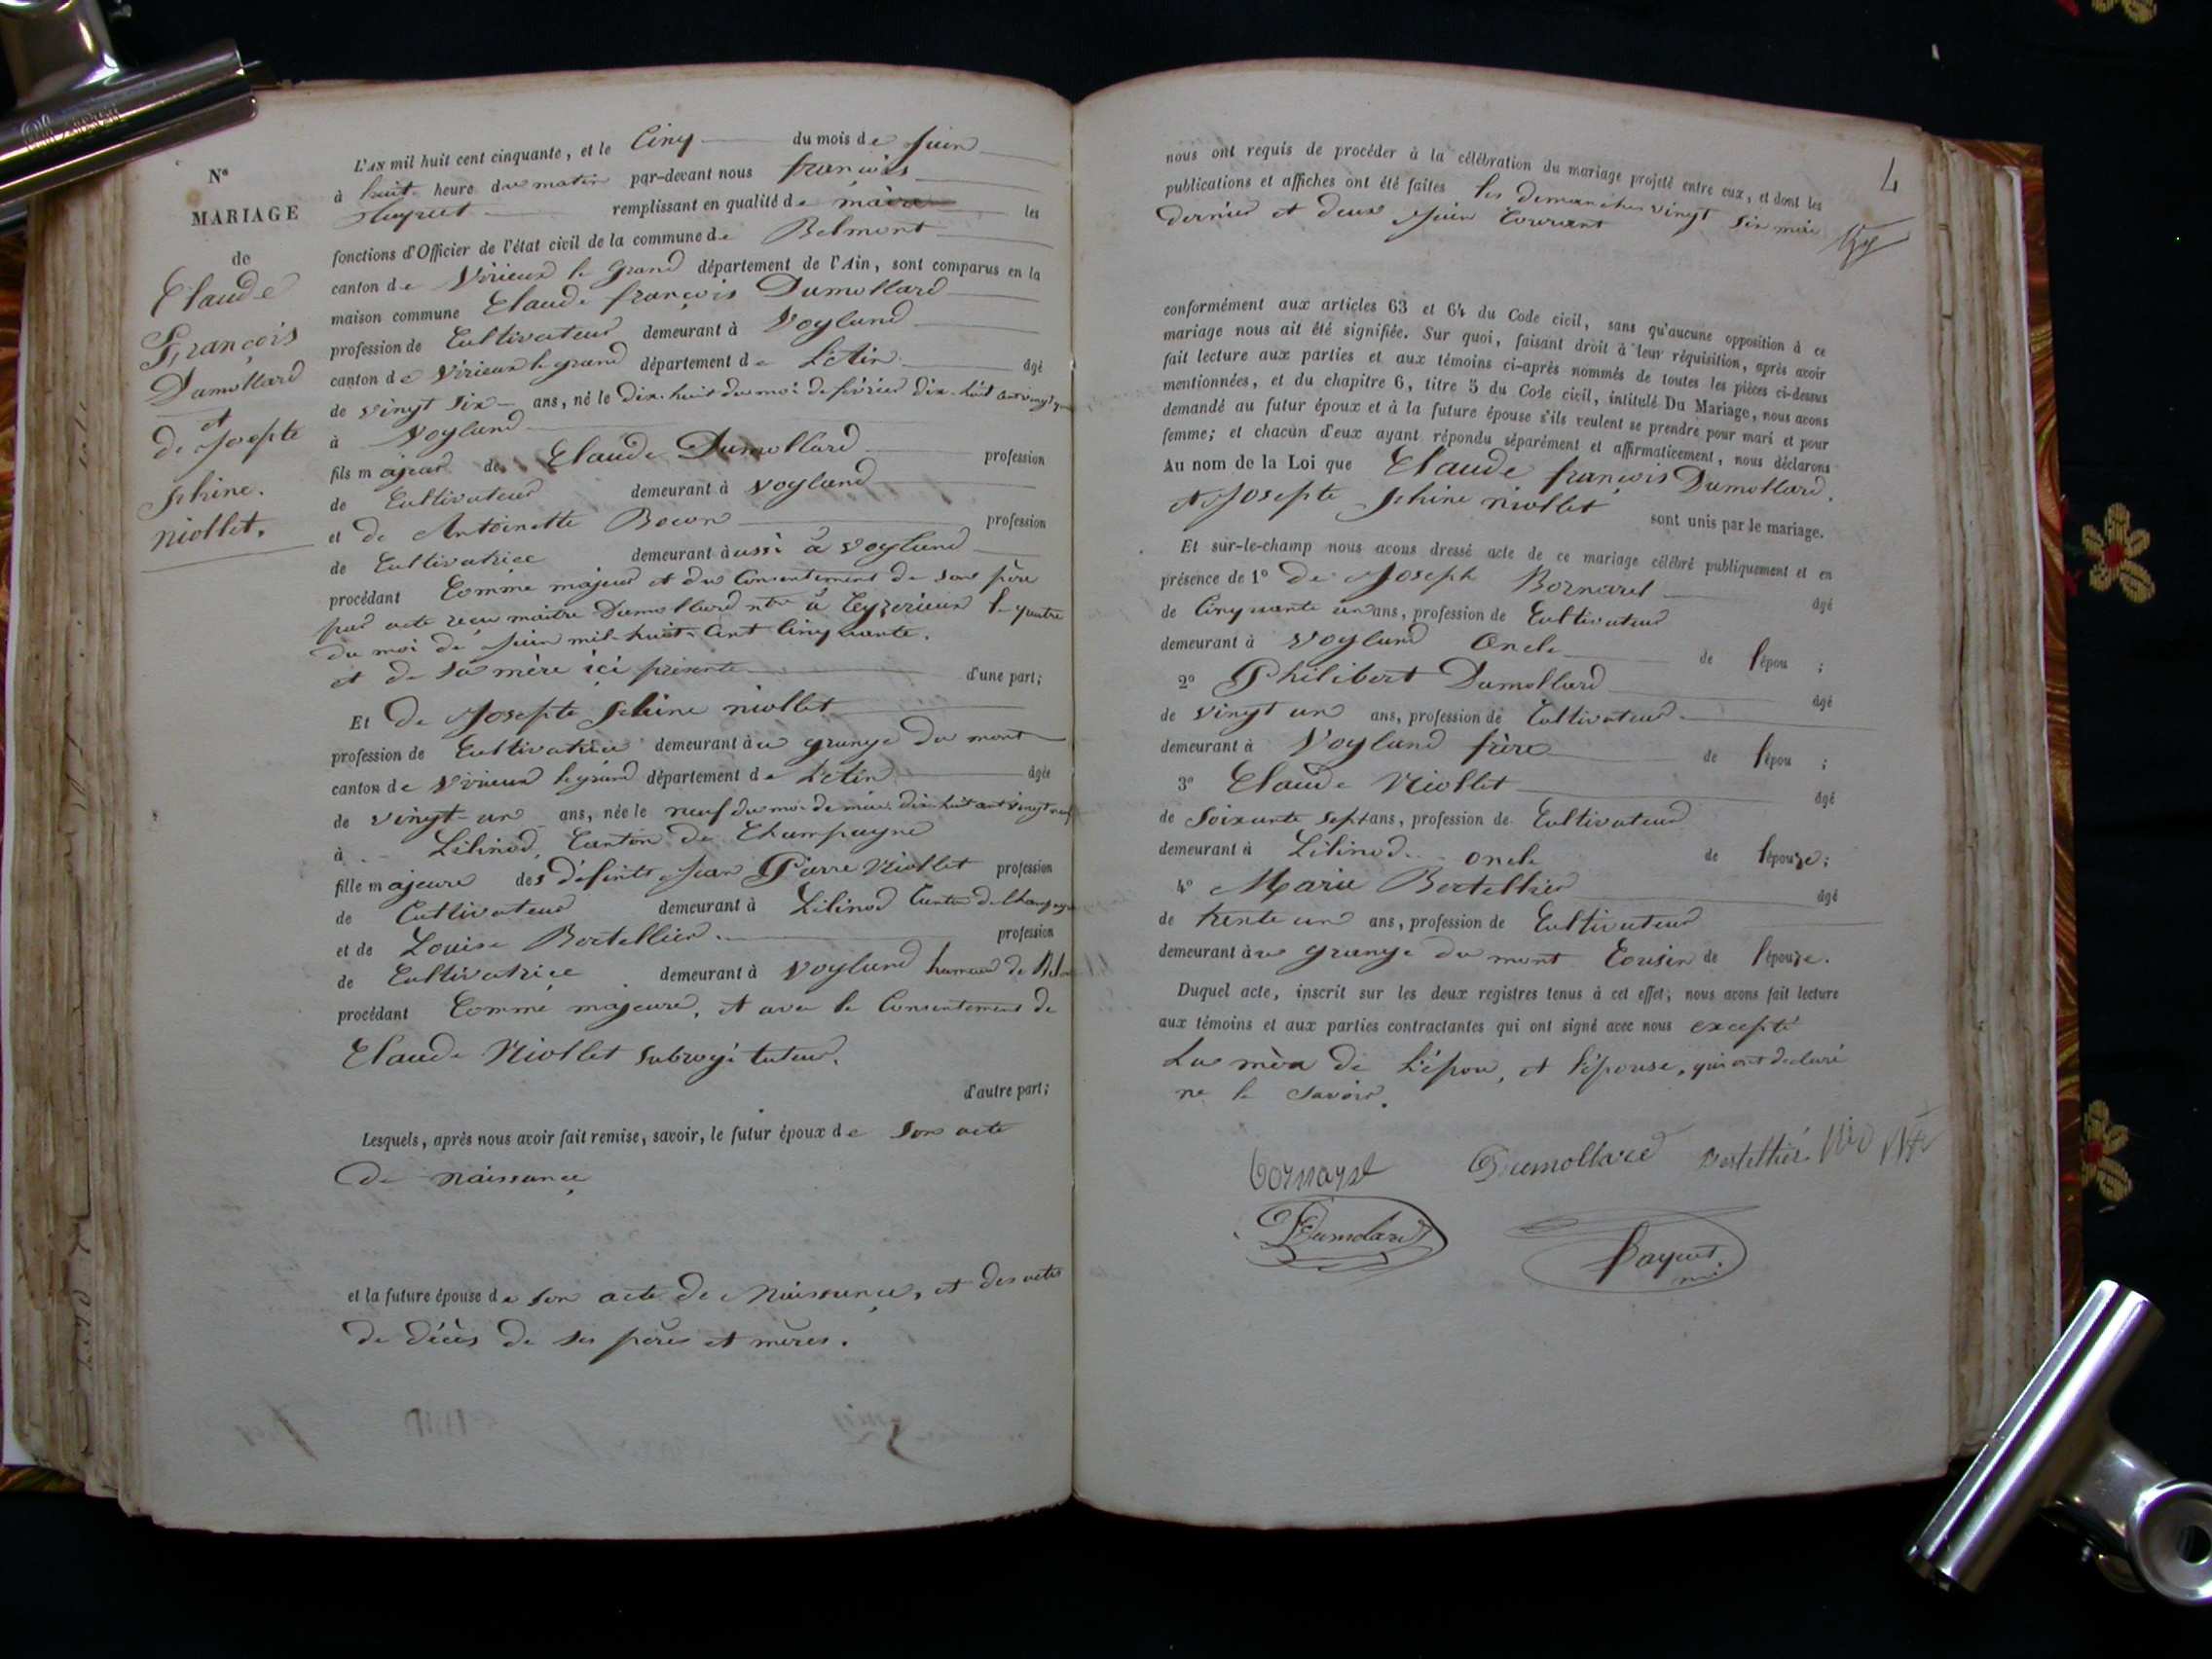 Nº
MARIAGE
de
Claude
François
Dumollard
et
de Josepte
phine.
niollet.
L'AN mil huit cent cinquante, et le Cinq du mois de juin
à huit heure du matin par-devant nous françois
remplissant en qualité de maire les
fonctions d'Officier de l'état civil de la commune de Belmont
canton de Virieux le grand département de l'Ain, sont comparus en la
maison commune Claude françois Dumollard
profession de Cultivateur demeurant à Voglund
canton de Virieux le grand département de L'Ain âgé
de vingt six ans, né le dix-huit du moi de février dix-huit cent vingt
à Voglund
fils majeur de Claude Dumollard profession
de Cultivateur demeurant à Voglund
et de Antoinette Bocon profession
de Cultivatrice demeurant à aussi à Voglund
procédant Comme majeur et du Consentement de son père
par acte reçu maitre Dumollard ntre à Ceyzerieux le quatre
du moi de juin mil-huit-cent cinquante.
et de sa mère içi présente d'une part;
Et de Josepte phine niollet
profession de Cultivatrice demeurant à u grange du mont
canton de Virieux le grand département de L'Ain âgée
de vingt-un ans, née le neuf du moi de mai dix-huit cent vingt neuf
à Lilinod, Canton de Champagne
fille majeure des défints Jean Pierre Niollet profession
de Cultivateur demeurant à Lilinod Canton de Champagne
et de Louise Bertellier profession
de Cultivatrice demeurant à Voglund hameau de
procédant Comme majeure, et avec le Consentement de
Claude Niollet subrogé tuteur.
d'autre part;
Lesquels, après nous avoir fait remise, savoir, le futur époux de son acte
de naissance
et la future épouse de son acte de Naissance, et des actes
de décès de ses pères et mères.
4
nous ont requis de procéder à la célébration du mariage projeté entre eux, et dont les
publications et affiches ont été faites les demanches vingt six mai
dernier et deux juin Courant
conformément aux articles 63 et 64 du Code civil, sans qu'aucune opposition à ce
mariage nous ait été signifiée. Sur quoi, faisant droit à leur réquisition, après avoir
fait lecture aux parties et aux témoins ci-après nommés de toutes les pièces ci-dessus
mentionnées, et du chapitre 6, titre 5 du Code civil, intitulé Du Mariage, nous avons
demandé au futur époux et à la future épouse s'ils veulent se prendre pour mari et pour
femme; et chacun d'eux ayant répondu séparément et affirmativement, nous déclarons
Au nom de la Loi que Claude françois Dumollard.
et Josepte phine niollet sont unis par le mariage.
Et sur-le-champ nous avons dressé acte de ce mariage célébré publiquement et en
présence de 1º de Joseph Bornarel âgé
de Cinquante un ans, profession de Cultivateur
demeurant à Voglund Oncle de l'épou ;
2º Philibert Dumollard âgé
de vingt un ans, profession de Cultivateur
demeurant à Voglund frère de l'épou ;
3º Claude Niollet âgé
de soixante sept ans, profession de Cultivateur
demeurant à Lilinod. oncle de l'épouze;
4º Marie Bertellier âgé
de trente un ans, profession de Cultivateur
demeurant à u grange du mont Cousin de l'épouze.
Duquel acte, inscrit sur les deux registres tenus à cet effet, nous avons fait lecture
aux témoins et aux parties contractantes qui ont signé avec nous excepté
La mère de L'épou, et l'épouse, qui ont declaré
ne le savoir.
bornarel Dumollard Bertellier
Dumolard